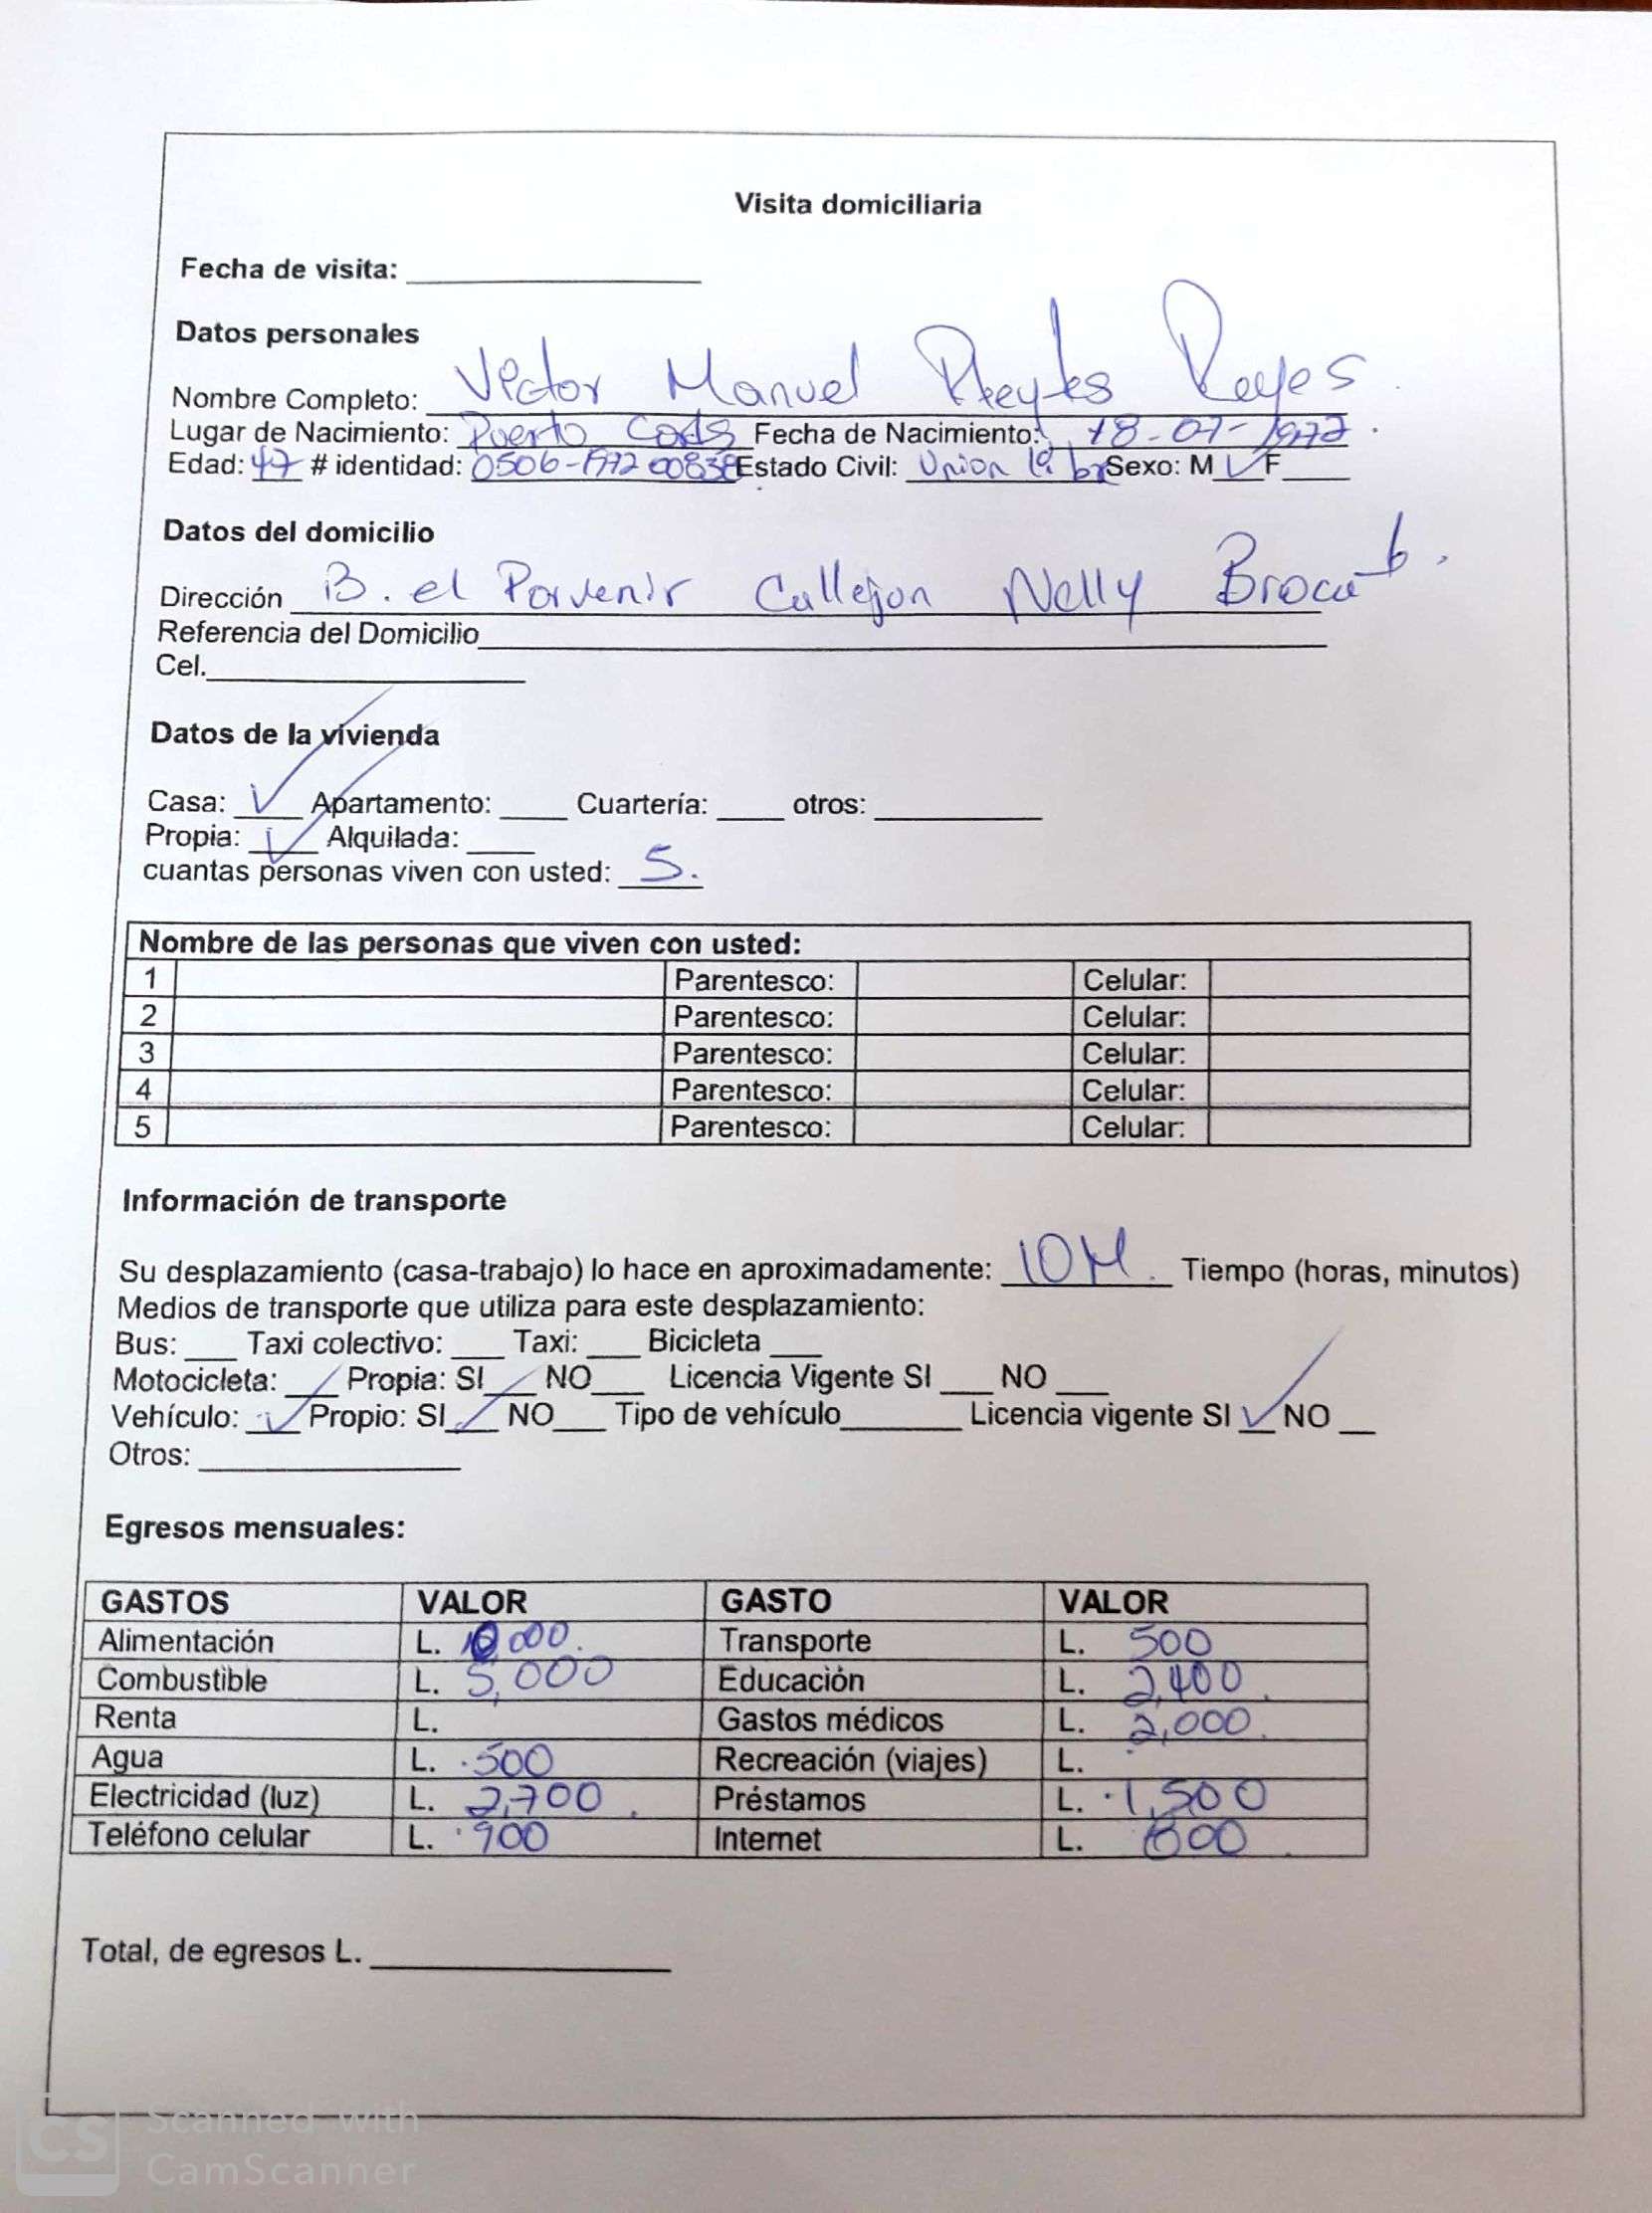 Visita domiciliaria
Fecha de visita: ____________
Datos personales
Nombre Completo: Victor Manuel Reyes Reyes.
Lugar de Nacimiento: Puerto Cortés Fecha de Nacimiento: 18-07-1972.
Edad: 47 # identidad: 0506-1972 00838 Estado Civil: Union libre Sexo: M ✓ F____
Datos del domicilio
Dirección B. el Porvenir Callejon Nelly
Referencia del Domicilio____________
Cel.____________
Datos de la vivienda
Casa: ✓ Apartamento: ____ Cuartería: ____ otros: ____________
Propia: ✓ Alquilada: ____
cuantas personas viven con usted: 5.
Nombre de las personas que viven con usted:
1 Parentesco: Celular:
2 Parentesco: Celular:
3 Parentesco: Celular:
4 Parentesco: Celular:
5 Parentesco: Celular:
Información de transporte
Su desplazamiento (casa-trabajo) lo hace en aproximadamente: 10 M. Tiempo (horas, minutos)
Medios de transporte que utiliza para este desplazamiento:
Bus: ___ Taxi colectivo: ___ Taxi: ___ Bicicleta ___
Motocicleta: ✓ Propia: SI ✓ NO___ Licencia Vigente SI ___ NO ___
Vehículo: ✓ Propio: SI ✓ NO___ Tipo de vehículo_______ Licencia vigente SI ✓ NO __
Otros: ____________
Egresos mensuales:
GASTOS VALOR GASTO VALOR
Alimentación L. 10000. Transporte L. 500
Combustible L. 5,000 Educación L. 2,400.
Renta L. Gastos médicos L. 2,000.
Agua L. 500 Recreación (viajes) L.
Electricidad (luz) L. 2,700. Préstamos L. 1,500
Teléfono celular L. 900 Internet L. 800
Total, de egresos L. ____________
CS Scanned with
CamScanner